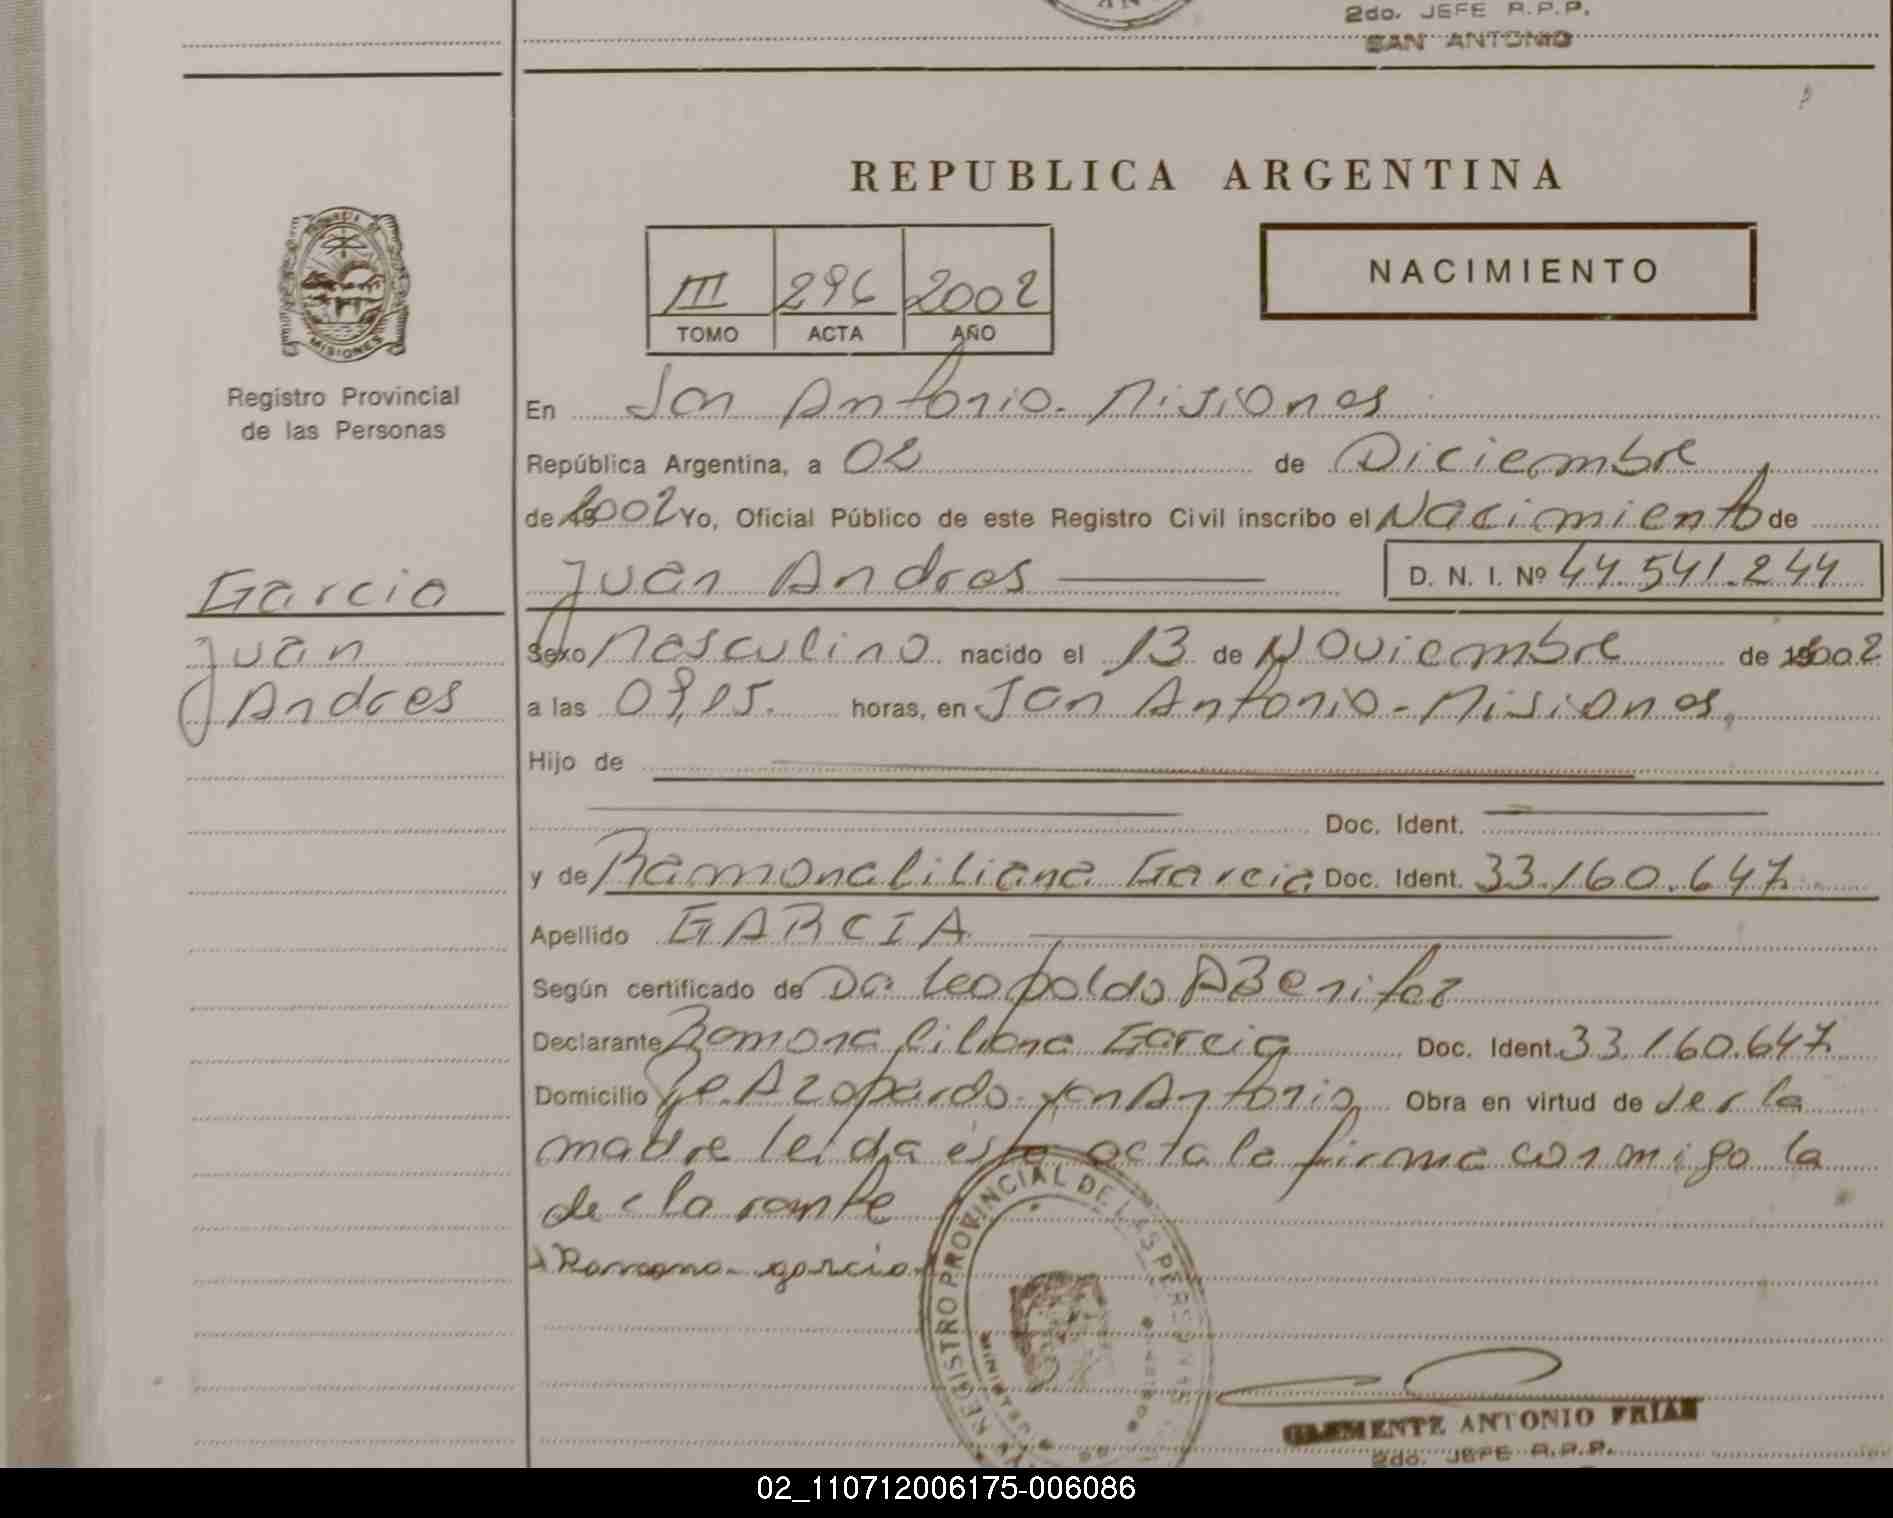 2do. JEFE R.P.P.
SAN ANTONIO
REPUBLICA ARGENTINA
MISIONES
III 296 2002
TOMO ACTA AÑO
NACIMIENTO
Registro Provincial
de las Personas
En San Antonio. Misiones
República Argentina, a 02 de Diciembre
de 2002 Yo, Oficial Público de este Registro Civil inscribo el Nacimiento de
Garcia
Juan Andres D. N. I. Nº 44.541.244
Juan
Andres
Sexo Masculino nacido el 13 de Noviembre de 2002
a las 09,15. horas, en San Antonio - Misiones.
Hijo de
Doc. Ident.
y de Ramona Liliana Garcia Doc. Ident. 33.160.647
Apellido GARCIA
Según certificado de Dr. Leopoldo A Benitez
Declarante Ramona Liliana Garcia Doc. Ident. 33.160.647
Domicilio Azopardo San Antonio Obra en virtud de ser la
madre leida esta acta la firma conmigo la
declarante
Ramona garcia
REGISTRO PROVINCIAL DE LAS PERSONAS
CLEMENTE ANTONIO FRIAS
2do. JEFE R.P.P.
02_110712006175-006086